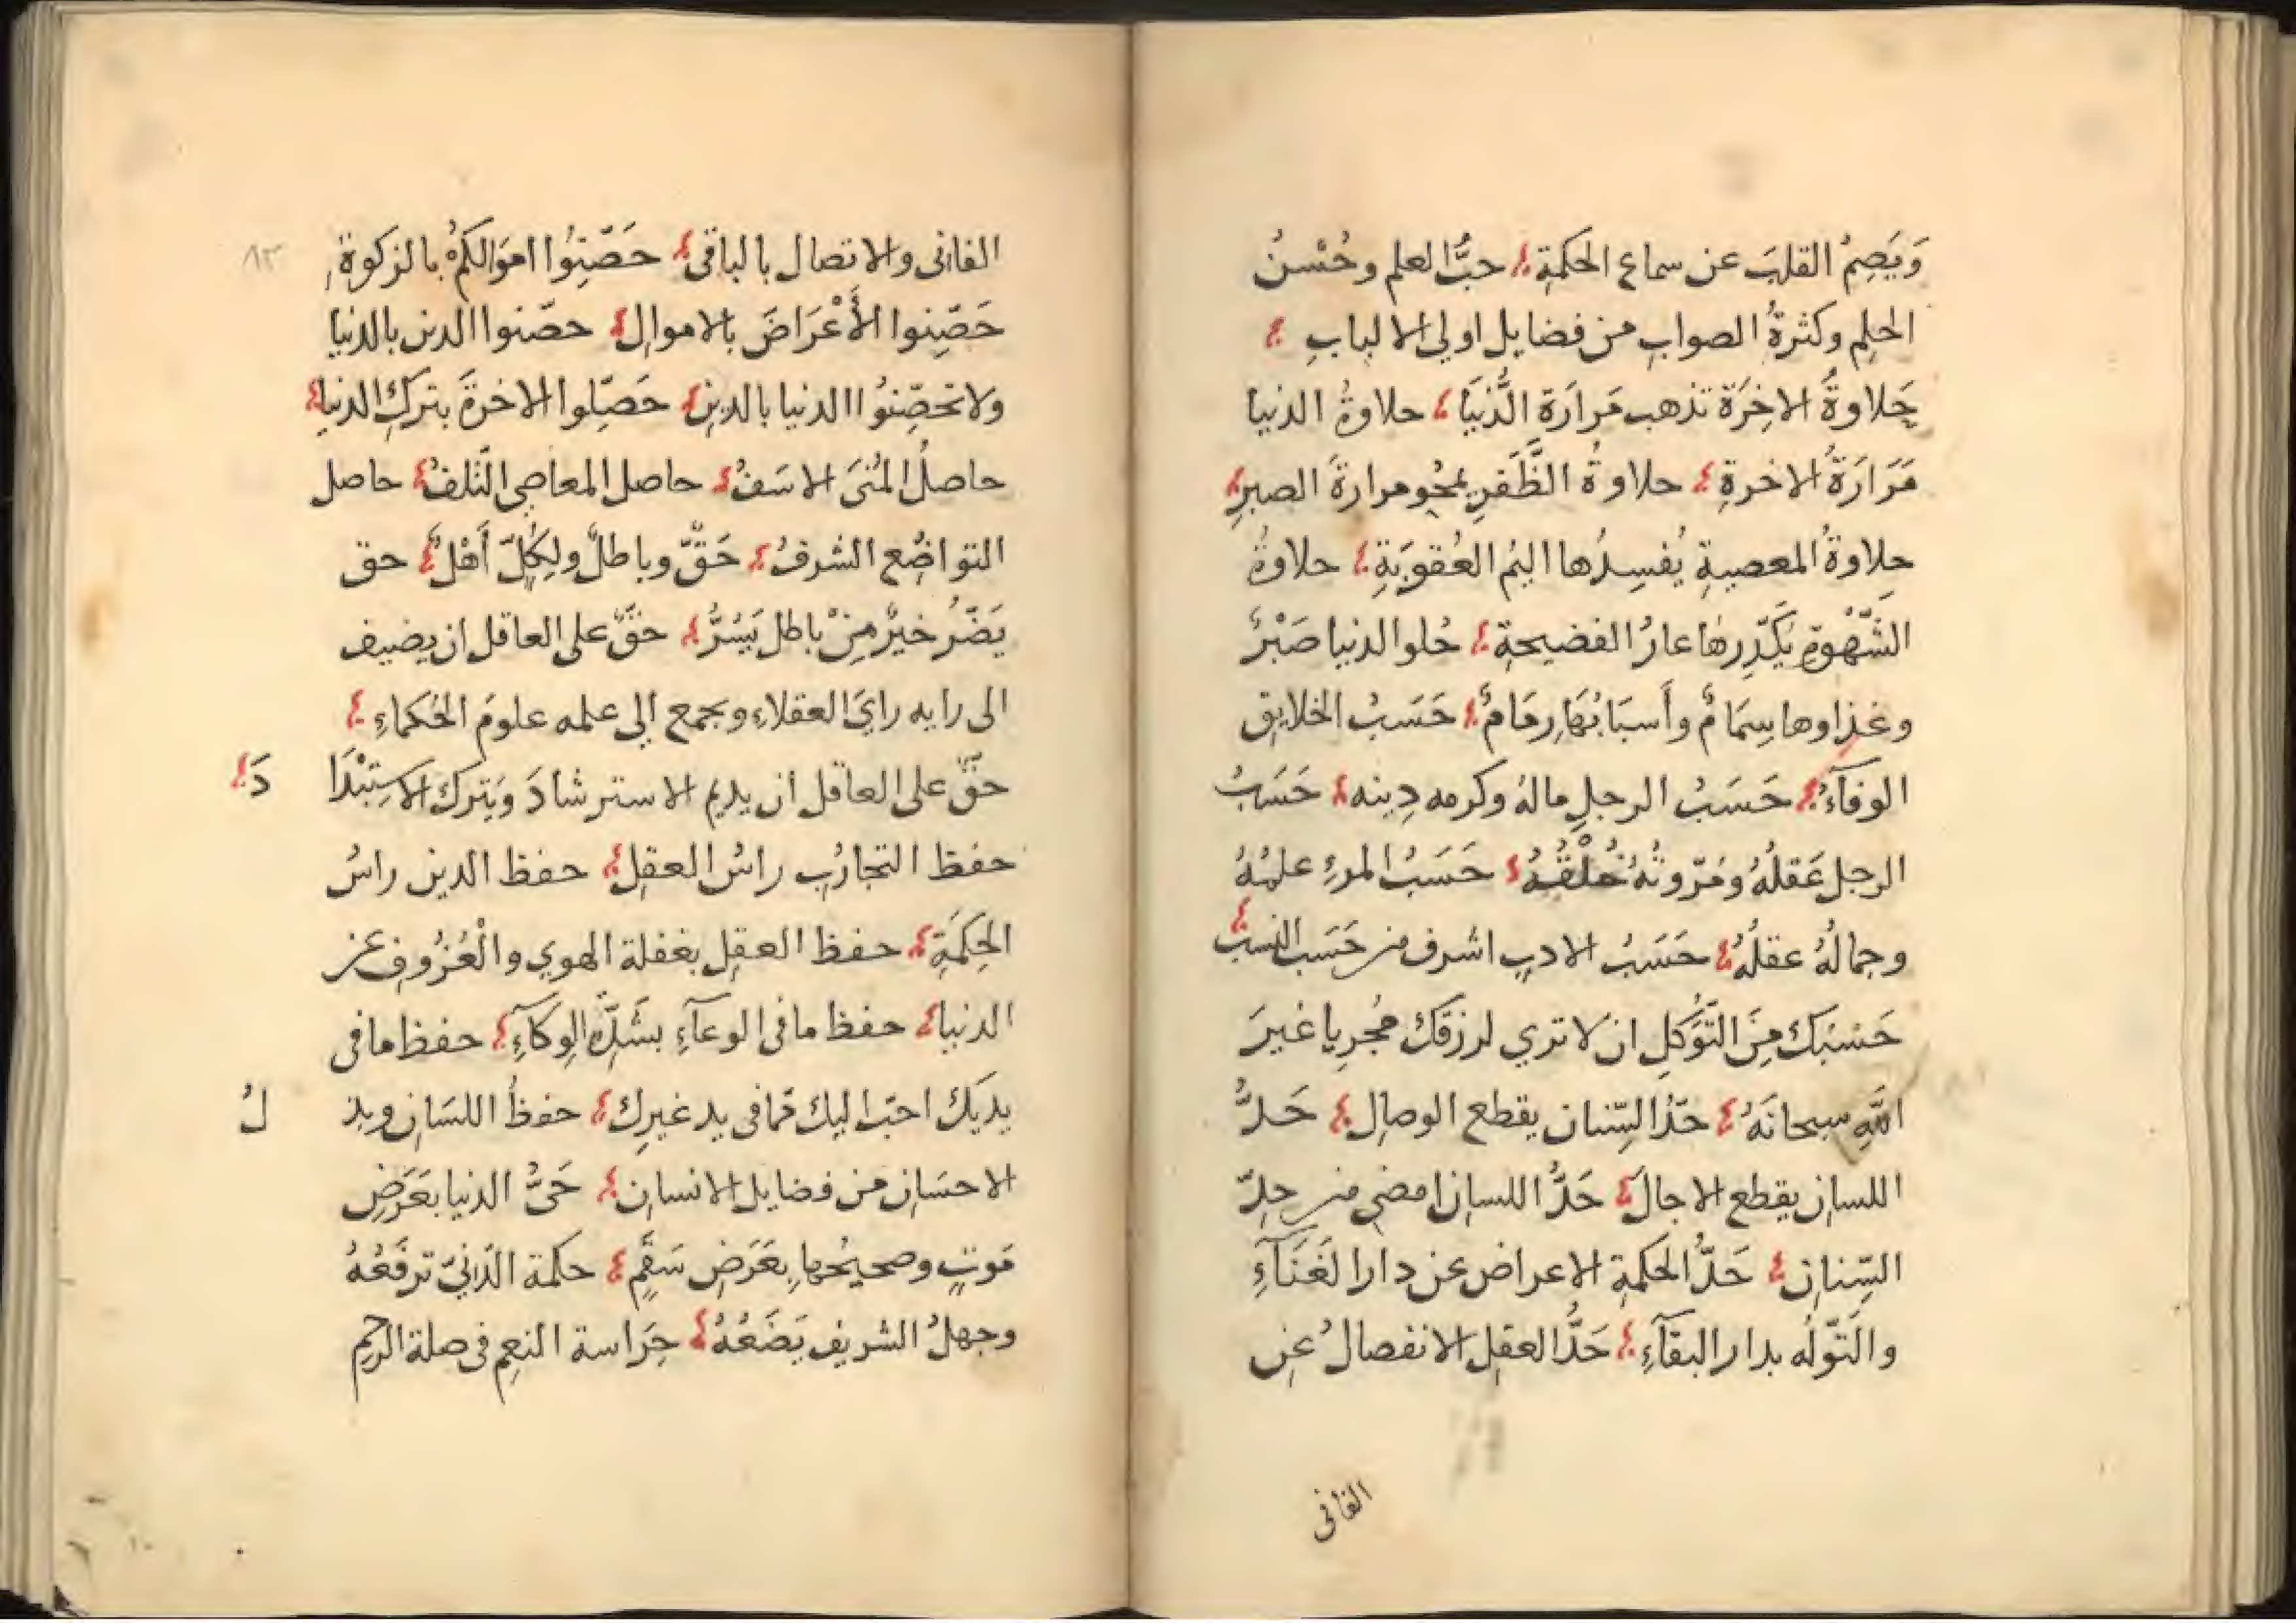 وَيَصِمُ القلبَ عن سماع الحكمةِ حبُّ العلم وحُسْنُ
الحلِم وكثرةُ الصوابِ من فضايل اولي الالبابِ
حَلاوةُ الاخِرَة تذهب مَرارَة الدُّنيَا حلاوةُ الدنيا
مَرَارَةُ الاخرةِ حلاوةُ الظَّفَرِ يمحُو مرارةَ الصبرِ
حلاوةُ المعصيةِ يُفسِدُها اليمُ العُقوبَةِ حلاوةُ
الشَّهْوةِ يُكَدِّرها عارُ الفضيحةِ حُلو الدنيا صَبْرٌ
وغذاوها سِمَامٌ وأَسبَابُهَا رِمَامٌ حَسَبُ الخلايق
الوفآءُ حَسَبُ الرجلِ مالهُ وكرمه دِينه حَسَبُ
الرجل عَقلُهُ ومُرّوتُهُ خُلْقُهُ حَسَبُ المرءِ علمُهُ
وجمالُهُ عقلُهُ حَسَبُ الادبِ اشرف من حَسَب النسب
حَسْبُكَ مِنَ التَّوَكلِ ان لا تري لرزقك مُجرِيا غيرَ
اللهِ سبحانَهُ حَدُّ السِّنان يقطع الوصِال حَدُّ
اللسان يقطع الاجالَ حَدُّ اللسان امضي من حدِّ
السِّنان حَدُّ الحكمةِ الاعراض عن دار الفَنَآءِ
والتَّوّلُه بدار البقآءِ حَدُّ العقل الانفصالُ عن
الفانى
الفانى والاتصال بالباقى حَصِّنُوا اموَالكمُ بالزكوة
٨٣
حَصِّنوا الأَعْرَاضَ بالاموال حصّنوا الدين بالدنيا
ولا تحصِّنوُا الدنيا بالدين حَصِّلوا الاخرةَ بتركِ الدنيا
حاصلُ المُنىَ الاسَفُ حاصل المعاصي التَّلفُ حاصل
التواضُع الشرفُ حَقٌّ وباطلٌ ولِكلّ أَهْلٌ حق
يَضّرُ خيرٌ مِنْ باطل يَسُرُّ حقٌّ على العاقل ان يضيف
الى رايه رايَ العقلاءِ ويجمع الى علمه علومَ الحُكمَاءِ
حقٌّ على العاقل ان يديم الاسترشادَ وَيَترك الاستِبْدَا
دَ
حفظ التجارُبِ راسُ العقل حفظ الدين راسُ
الحِكمَةِ حفظ العقل بغفلة الهوي والْعُزُوفِ عن
الدنيا حفظ ما في الوعآءِ بشَدِّ الوِكآءِ حفظ ما في
يديَكَ احبّ اليك ممّا في يد غيرِك حفظُ اللسَان وبذ
لُ
الاحسَان من فضايل الانسان حَىُّ الدنيا بعَرَضِ
مَوتٍ وصحيحُها بعَرَضِ سَقَمٍ حكمة الدّنيّ ترفَعُهُ
وجهلُ الشريف يَضَعُهُ حِرَاسة النعِم في صلة الرحِم